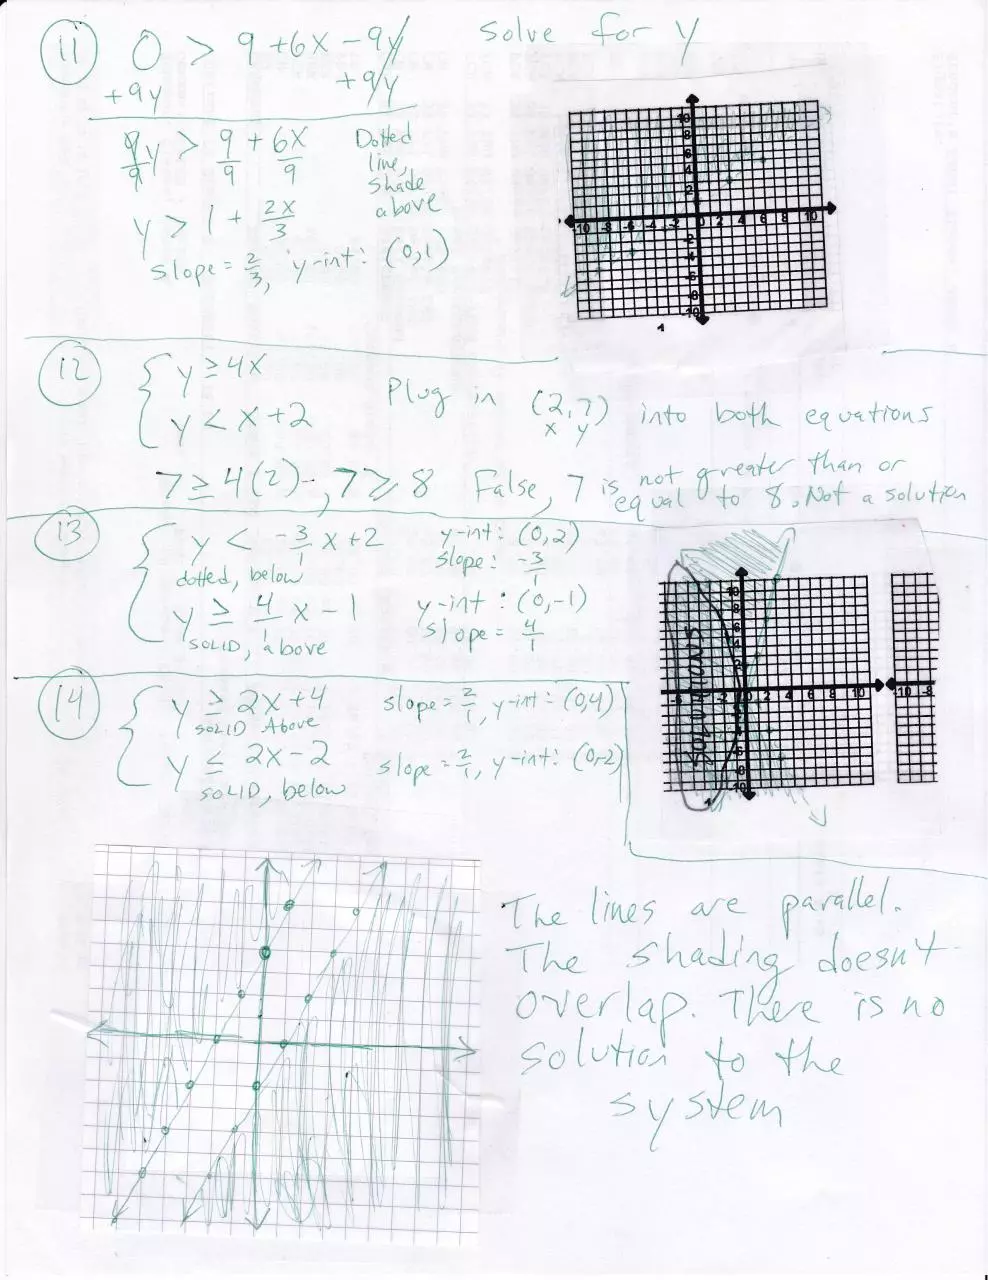 11 0 > 9 + 6x - 9y solve for y
+9y +9y
9y/9 > 9/9 + 6x/9 Dotted line, shade above
y > 1 + 2x/3
slope = 2/3, y-int: (0,1)
10 8 6 4 2
-10 -8 -6 -4 -2 0 2 4 6 8 10
-2 -4 -6 -8 -10
12 { y ≥ 4x
y < x + 2
Plug in (2,7) into both equations
x y
7 ≥ 4(2), 7 ≥ 8 False, 7 is not greater than or
equal to 8. Not a solution
13 { y < -3/1 x + 2 y-int: (0,2)
dotted, below slope: -3/1
y ≥ 4/1 x - 1 y-int: (0,-1)
SOLID, above slope = 4/1
SOLUTIONS
14 { y ≥ 2x + 4 slope = 2/1, y-int: (0,4)
SOLID Above
y ≤ 2x - 2 slope = 2/1, y-int: (0,-2)
SOLID, below
The lines are parallel.
The shading doesn't
overlap. There is no
solution to the
system